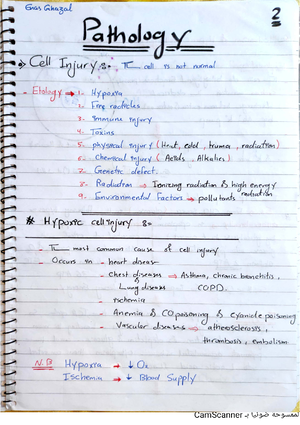 Enas Ghazal
2
Pathology
Cell Injury :- The cell is not normal
- Etiology → 1- Hypoxia
2- Free radicles
3- Immune injury
4- Toxins
5- physical injury (Heat, cold, truma, radiation)
6- Chemical injury (Acids, Alkalies)
7- Genetic defect.
8- Radiation → Ionizing radiation & high energy radiation
9- Environmental Factors → pollutants
# Hypoxic cell injury :-
- The most common cause of cell injury
- Occurs in - heart disease
- Chest diseases → Asthma, chronic bronchitis,
Lung diseases COPD.
- ischemia
- Anemia & CO poisoning & cyanide poisoning
- Vascular diseases → atheosclerosis,
thrombosis, embolism.
N.B Hypoxia → ↓ O₂
Ischemia → ↓ Blood Supply
الممسوحة ضوئيا بـ CamScanner